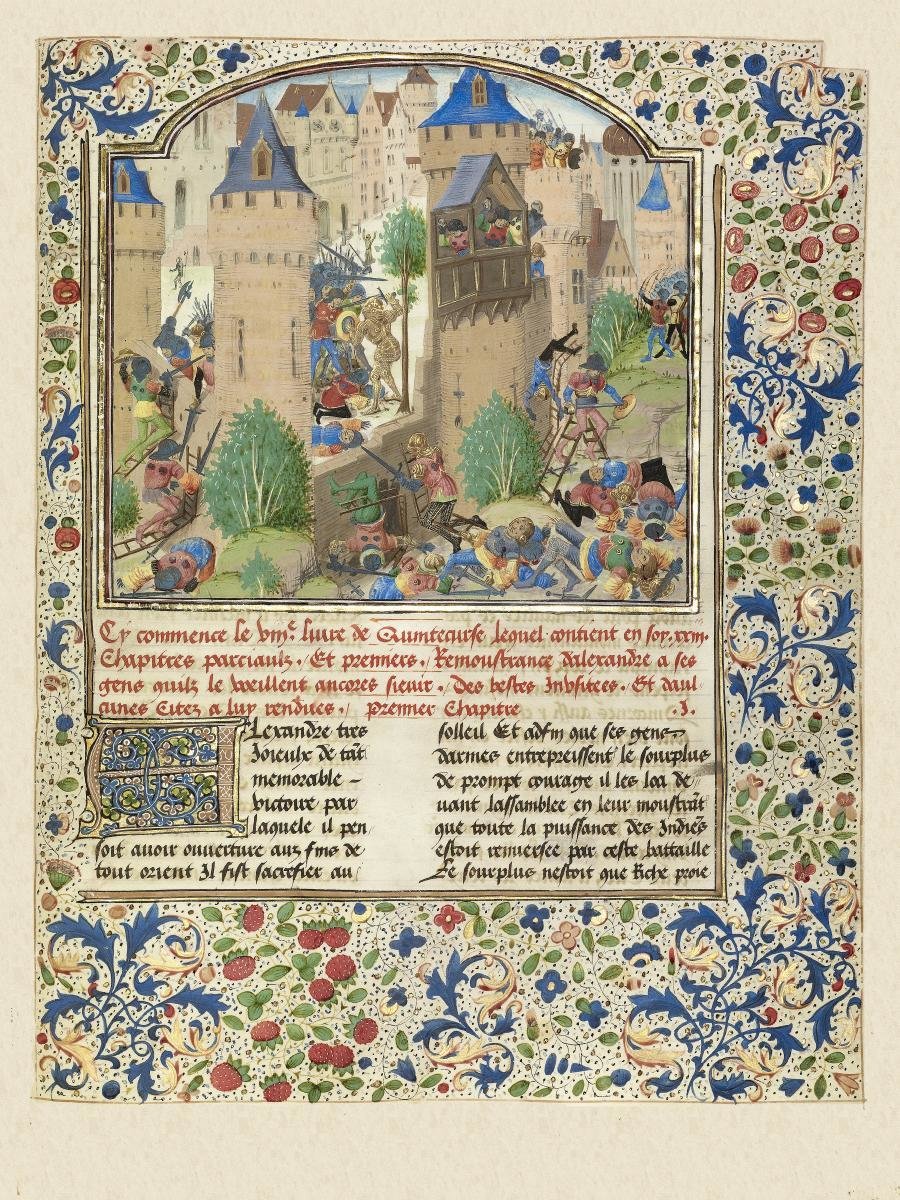 Cy commence le viiije livre de Quintecurse lequel contient en soy .xxiiij.
Chapitres parciaulz . Et premiers . Remoustrance dalexandre a ses
gens quilz le vueillent ancores sievir . Des bestes Inusitees . Et daul
cunes Citez a luy rendues . Premier Chapitre .I.
Alexandre tres
Joieulx de tāt
memorable
victoire par
laquele il pen
soit avoir ouverture aux fins de
tout orient Il fist sacrefier au
solleil Et adfin que ses gens
darmes entrepressent le sourplus
de prompt courage il les loa de
uant lassamblee en leur moustrāt
que toute la puissance des Indiēs
estoit renversee par ceste battaille
Le sourplus nestoit que Riche proie